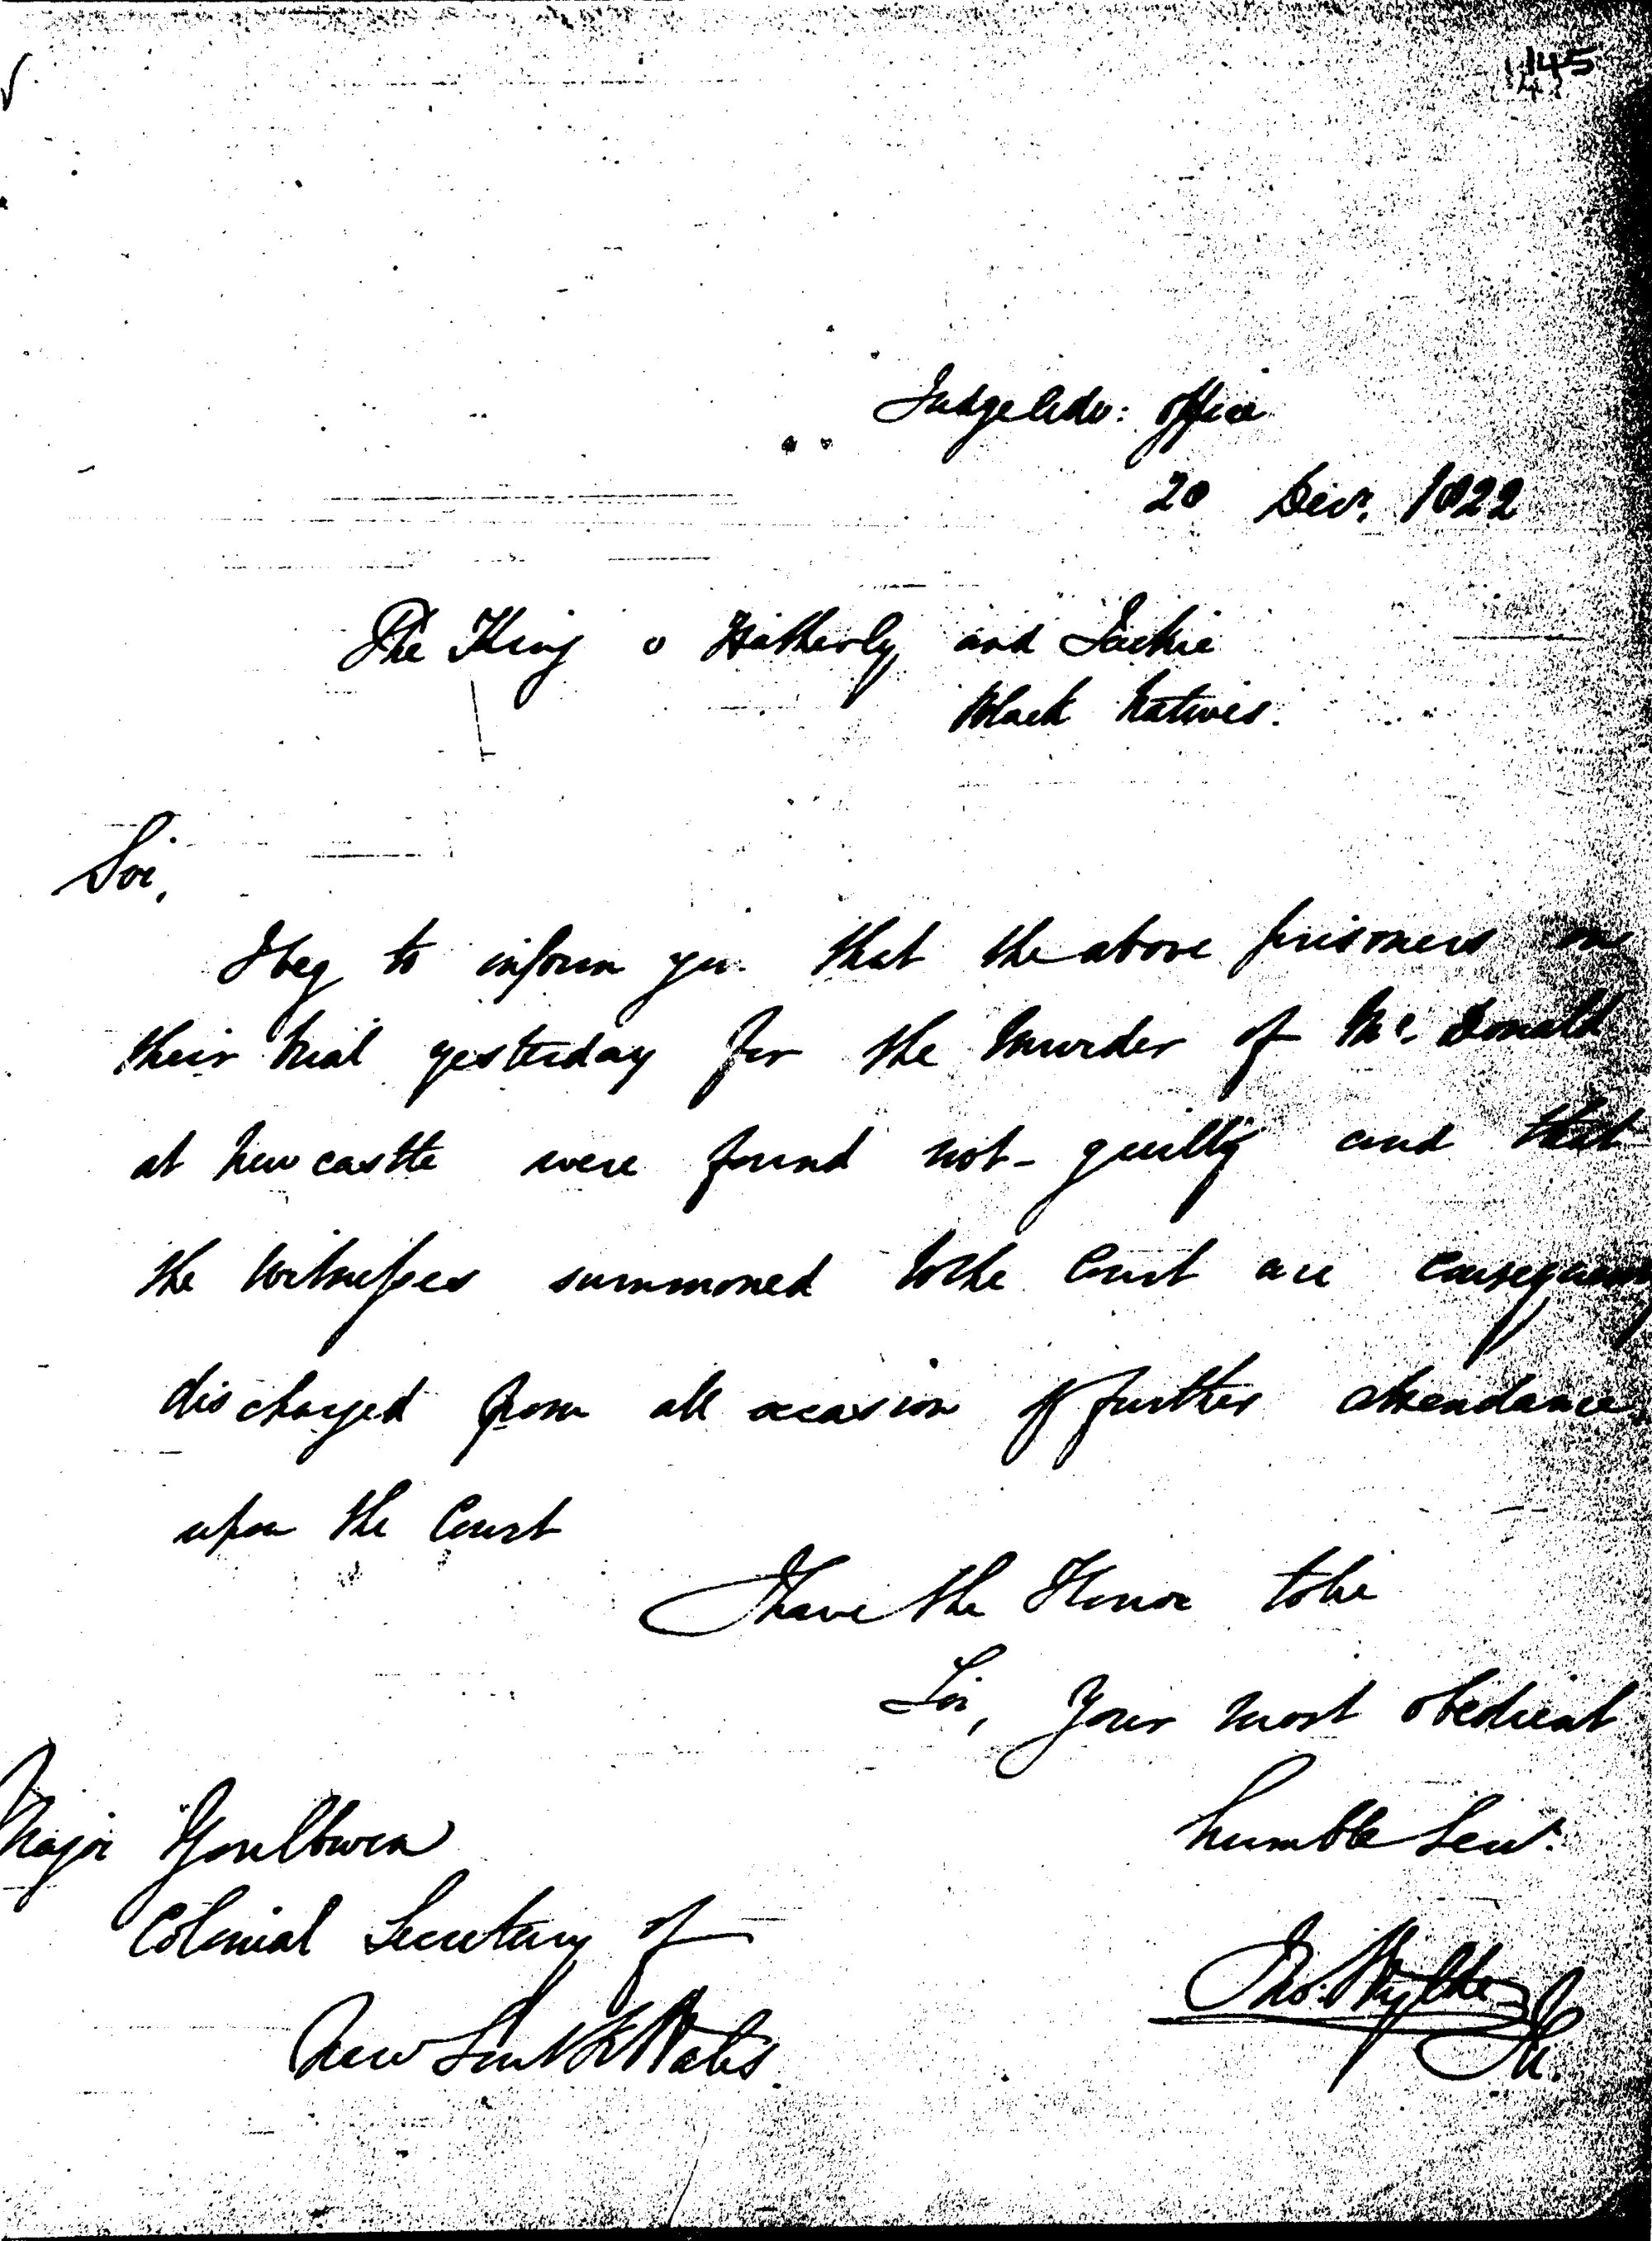 145
Judge Adv: office
20 Decr. 1822
The King v Hatherly and Jackie
Black Natives.
Sir,
I beg to inform you that the above prisoners on
their trial yesterday for the Murder of Mc. Donald
at Newcastle were found not guilty and that
the Witnesses summoned to the Court are
discharged from all occasion of further attendance
upon the Court
I have the Honor to be
Sir, Your most obedient
humble Servt.
Major Goulburn
Colonial Secretary of
New South Wales.
Jno. Wylde
JA.